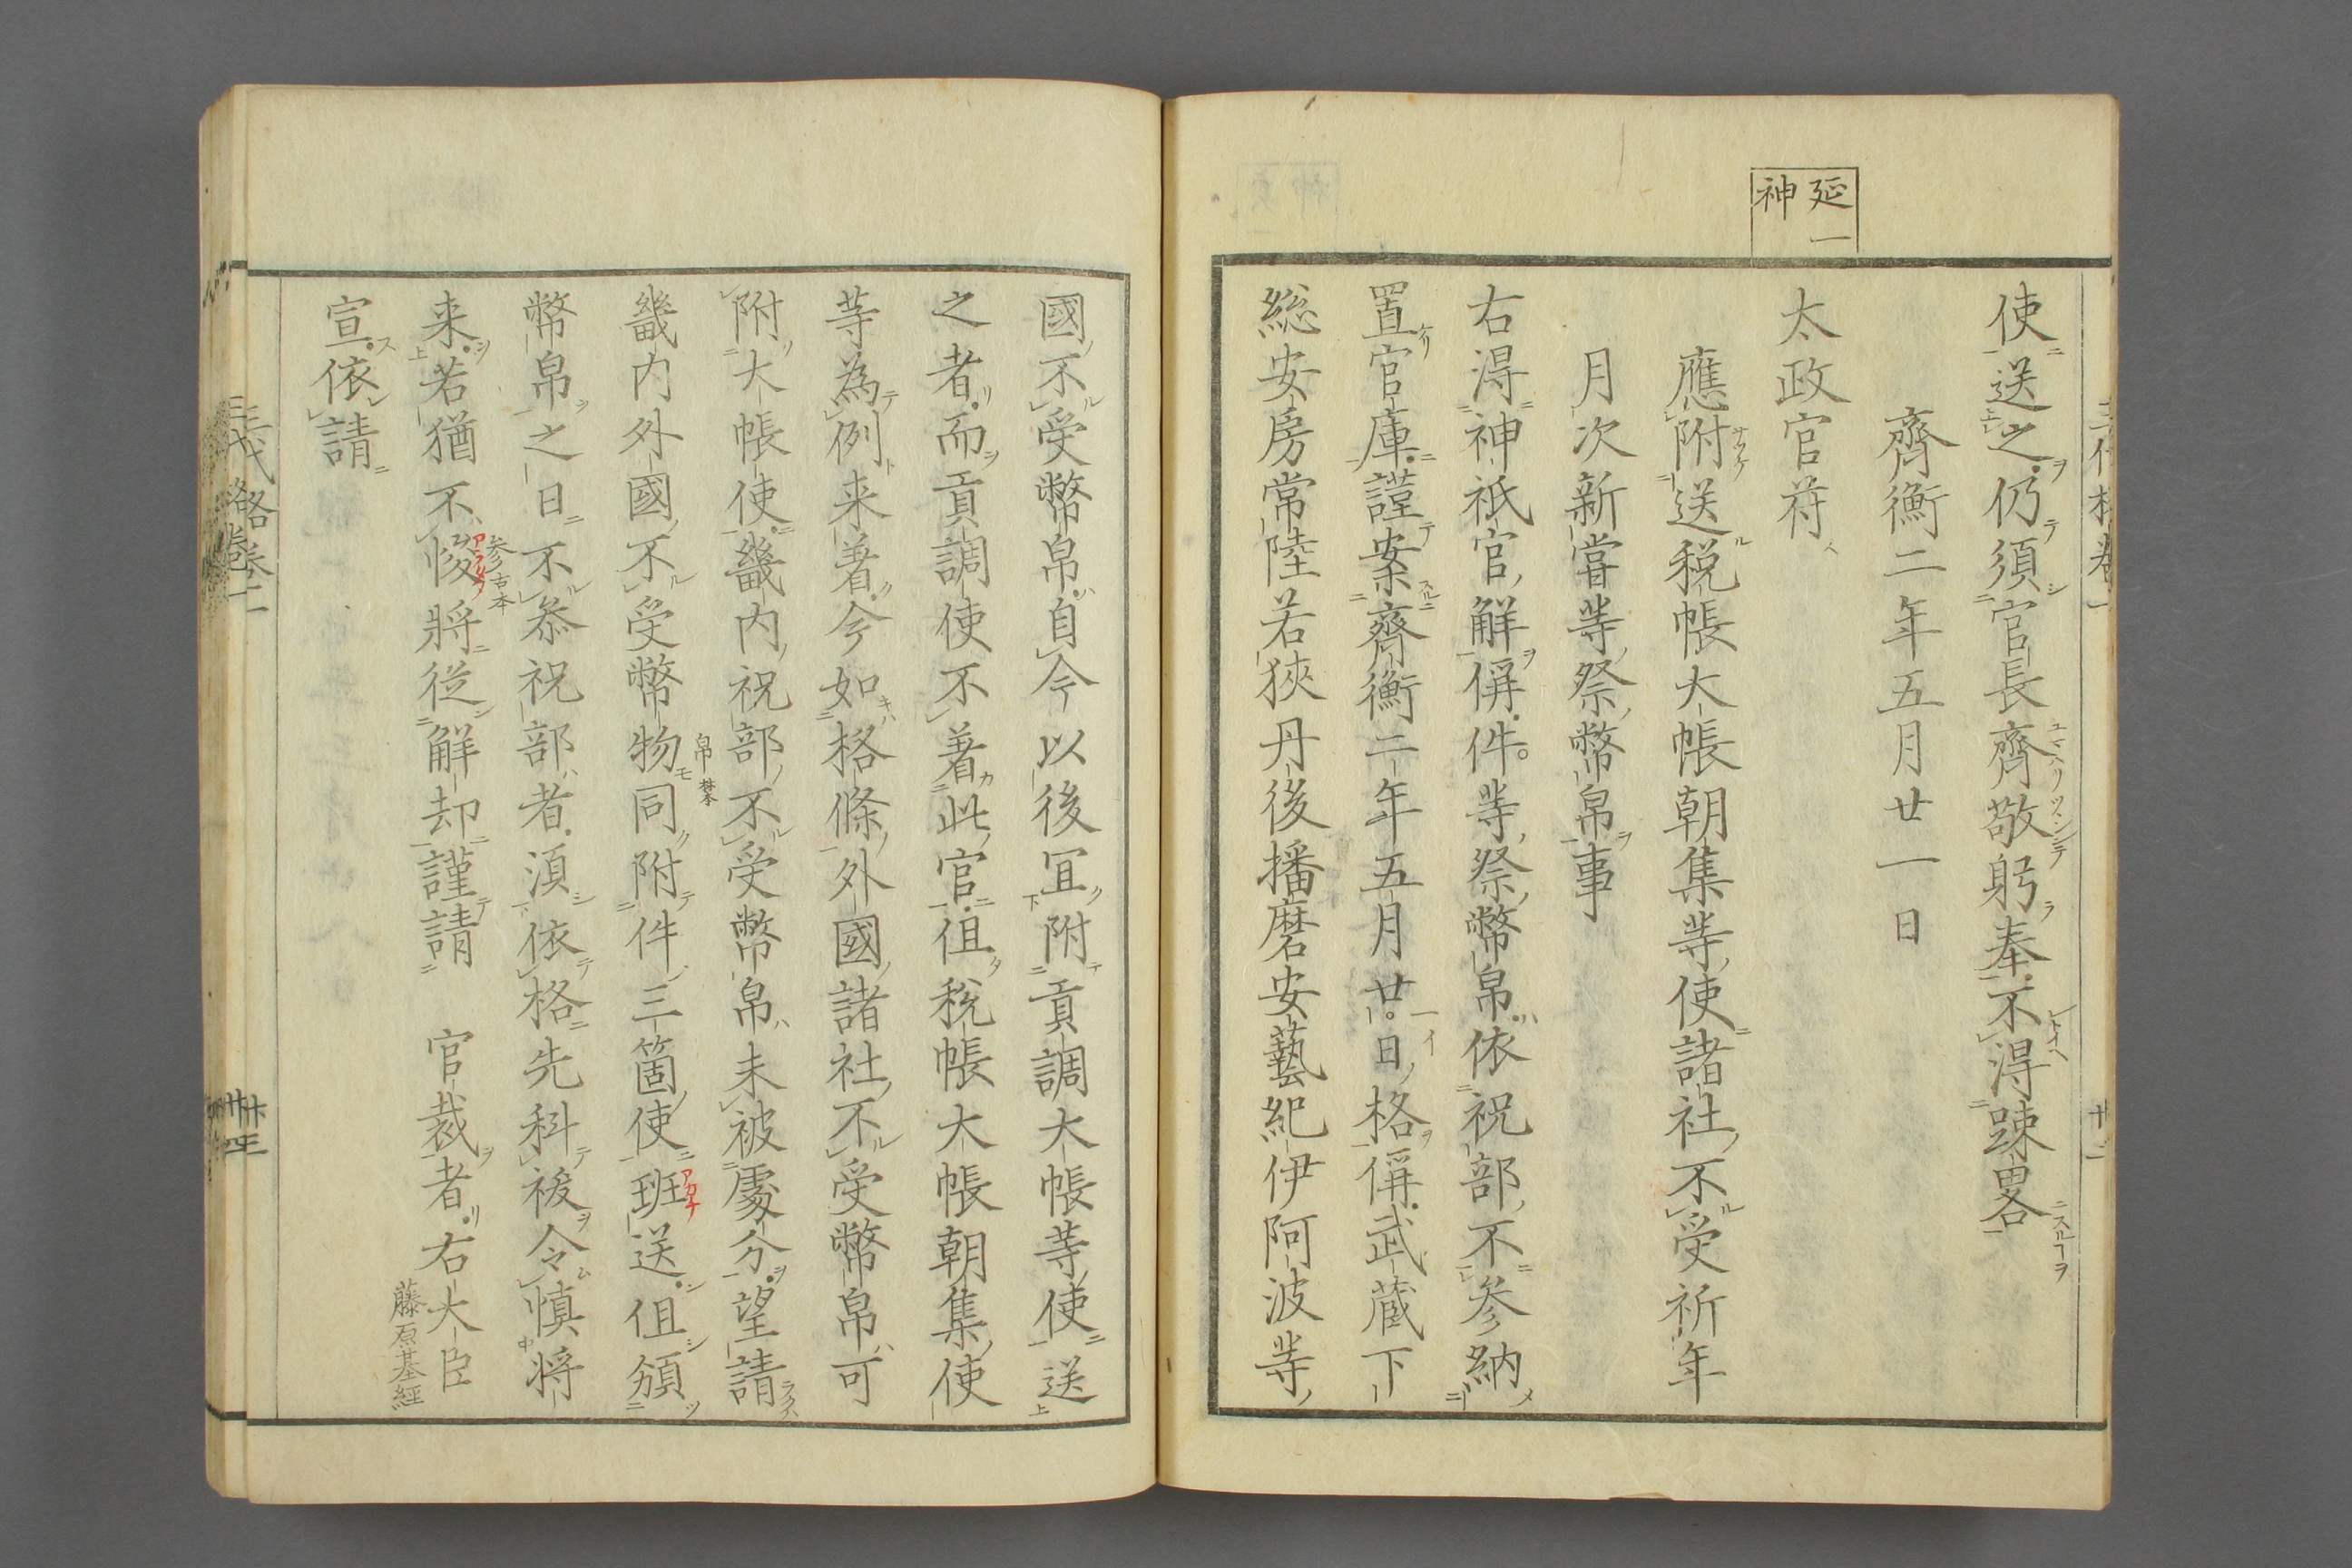 延一
神
使送之仍須官長齊敬躬奉不得踈畧
齊衡二年五月廿一日
太政官苻
應附送税帳大帳朝集等使諸社不受祈年
月次新嘗等祭幣帛事
右得神祇官解偁件等祭幣帛依祝部不参納
置官庫謹案齊衡二年五月廿日格偁武蔵下
総安房常陸若狹丹後播磨安藝紀伊阿波等
國不受幣帛自今以後冝附貢調大帳等使送
之者而貢調使不着此官但税帳大帳朝集使
等為例来着今如格條外國諸社不受幣帛可
附大帳使畿内祝部不受幣帛未被處分望請
畿内外國不受幣物同附件三箇使班送但頒
帛 林本
幣帛之日不叅祝部者湏依格先科祓令慎将
来若猶不悛將從解却謹請 官裁者右大臣
参古本
藤原基經
宣依請
三代格卷二